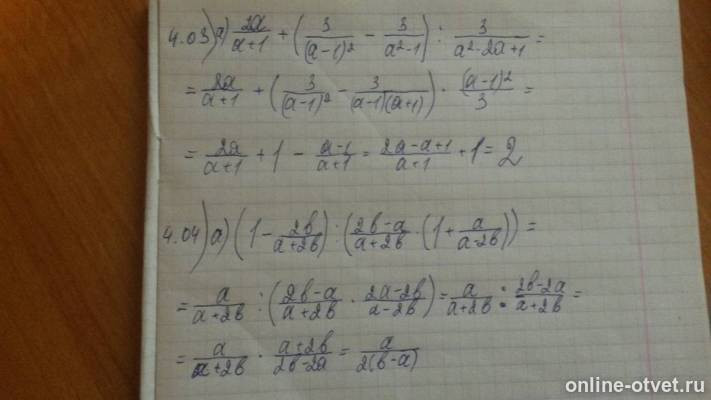 4.03) а) 2a/(a+1) + (3/(a-1)² - 3/(a²-1)) : 3/(a²-2a+1) =
= 2a/(a+1) + (3/(a-1)² - 3/((a-1)(a+1))) · (a-1)²/3 =
= 2a/(a+1) + 1 - (a-1)/(a+1) = (2a-a+1)/(a+1) + 1 = 2
4.04) а) (1 - 2b/(a+2b)) : ((2b-a)/(a+2b) · (1 + a/(a-2b))) =
= a/(a+2b) : ((2b-a)/(a+2b) · (2a-2b)/(a-2b)) = a/(a+2b) : (2b-2a)/(a+2b) =
= a/(a+2b) · (a+2b)/(2b-2a) = a/(2(b-a))
online-otvet.ru